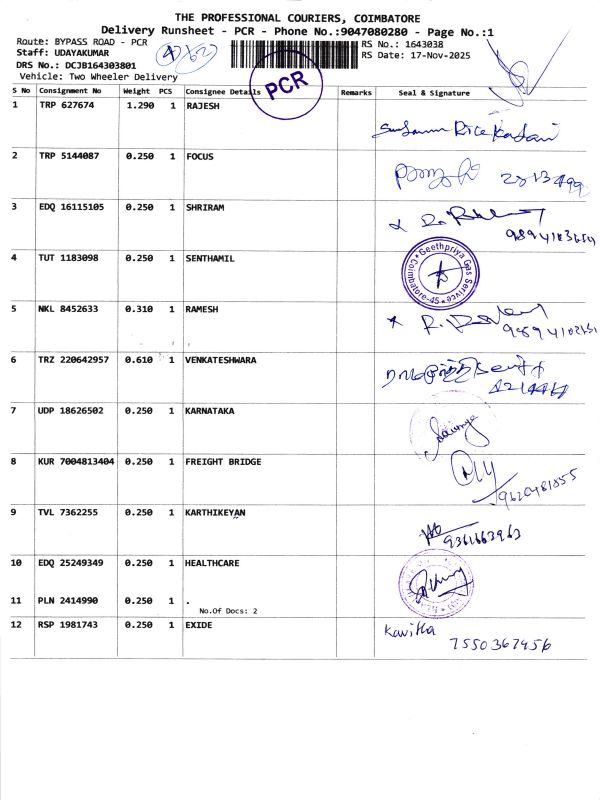 THE PROFESSIONAL COURIERS, COIMBATORE
Delivery Runsheet - PCR - Phone No.:9047080280 - Page No.:1
Route: BYPASS ROAD - PCR
RS No.: 1643038
Staff: UDAYAKUMAR
RS Date: 17-Nov-2025
DRS No.: DCJB164303801
Vehicle: Two Wheeler Delivery
PCR
S No Consignment No Weight PCS Consignee Details Remarks Seal & Signature
1 TRP 627674 1.290 1 RAJESH
Rice
2 TRP 5144087 0.250 1 FOCUS
3 EDQ 16115105 0.250 1 SHRIRAM
4 TUT 1183098 0.250 1 SENTHAMIL
Geethpriya Gas Serivce
Coimbatore-45
5 NKL 8452633 0.310 1 RAMESH
6 TRZ 220642957 0.610 1 VENKATESHWARA
7 UDP 18626502 0.250 1 KARNATAKA
8 KUR 7004813404 0.250 1 FREIGHT BRIDGE
9620481855
9 TVL 7362255 0.250 1 KARTHIKEYAN
9361663963
10 EDQ 25249349 0.250 1 HEALTHCARE
11 PLN 2414990 0.250 1 .
No.Of Docs: 2
12 RSP 1981743 0.250 1 EXIDE
Kavitha
7550367456